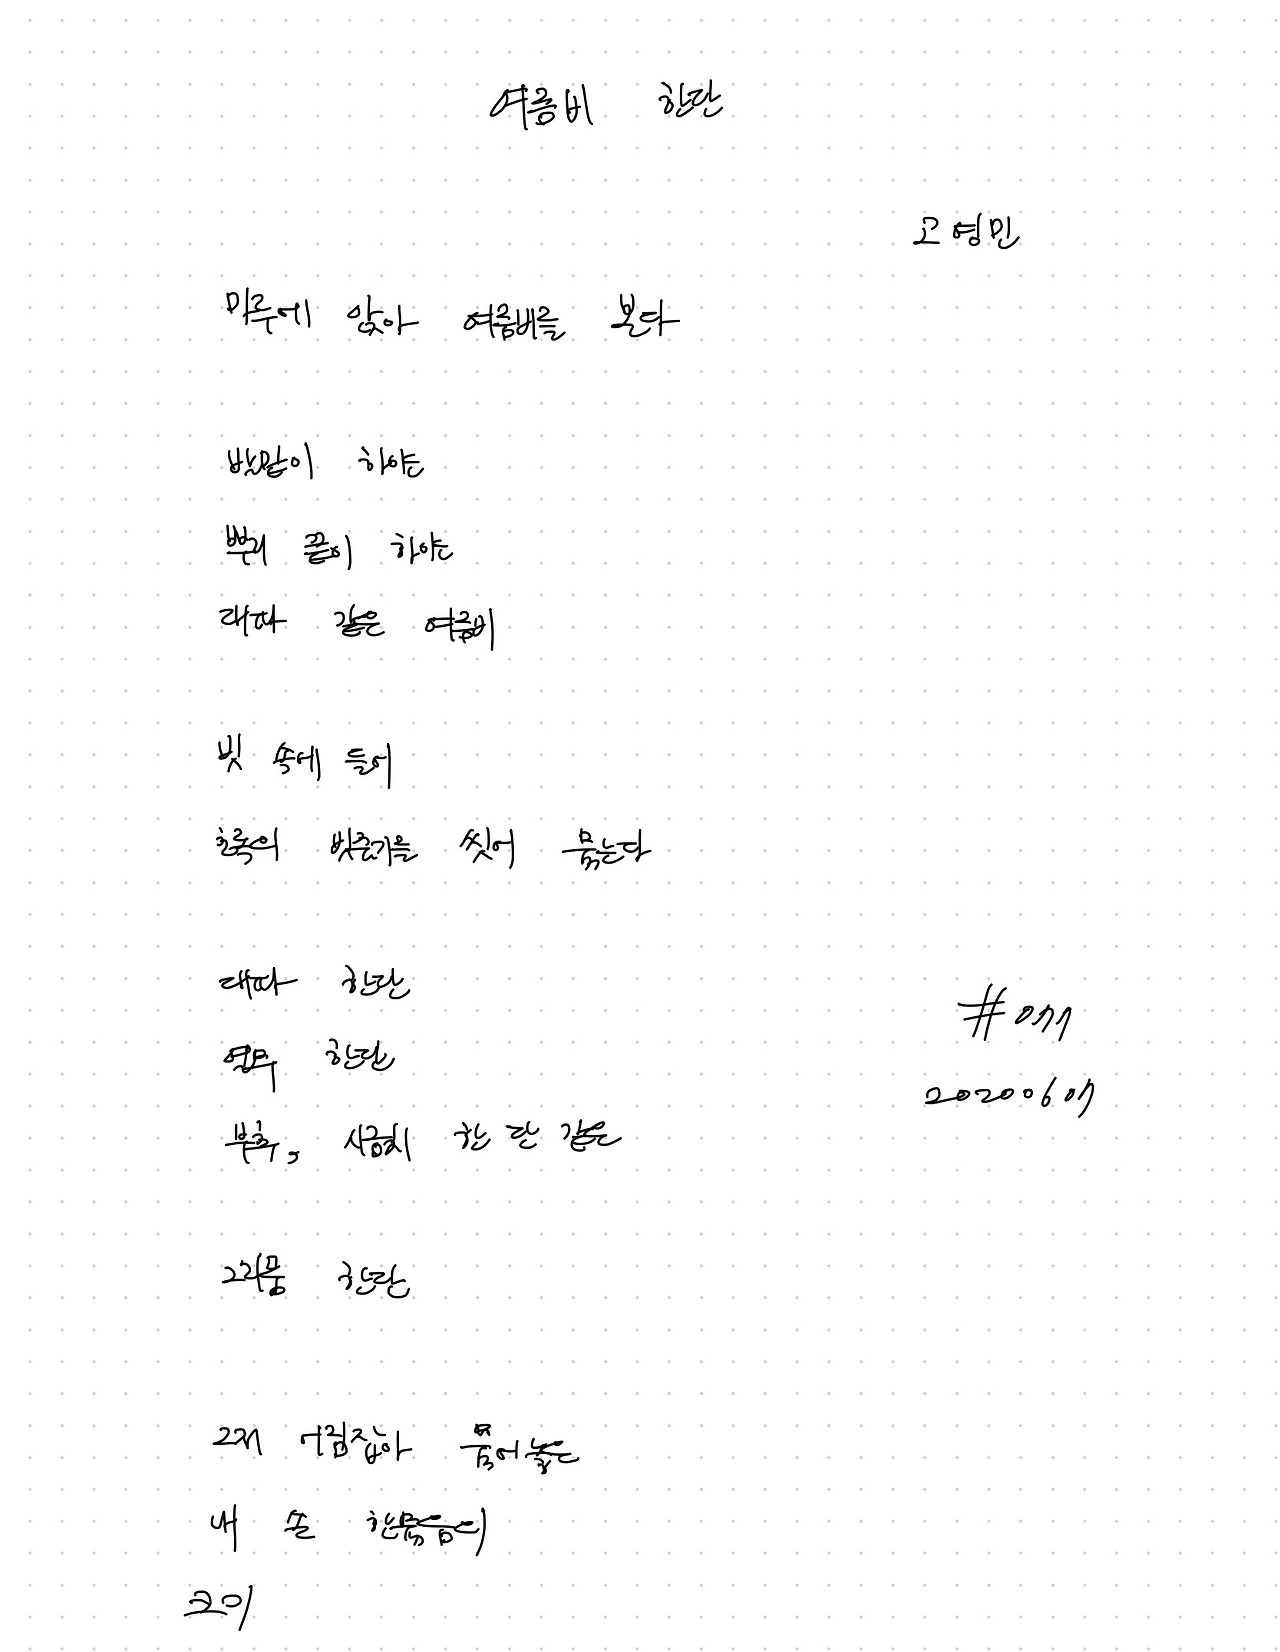 여름비 한단
고영민
마루에 앉아 여름비를 본다
발밑이 하얀
뿌리 끝이 하얀
대파 같은 여름비
빗 속에 들어
초록의 빗줄기를 씻어 묶는다
대파 한단
열무 한단
부추, 시금치 한 단 같은
그리움 한단
그저 어림잡아 묶어 놓은
내 손 한묶음의
크기
#077
20200607